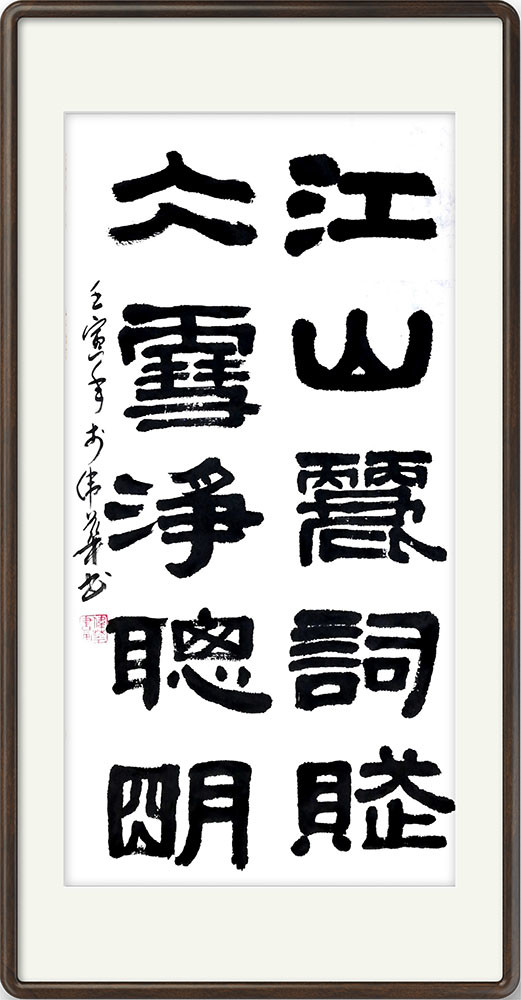 江山麗詞賦
仌雪淨聰明
壬寅年於偉華書